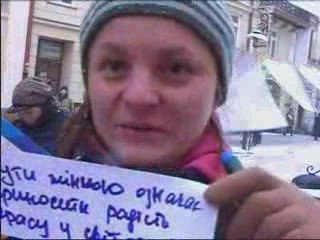 бути жінкою означає
приносити радість
красу у світ